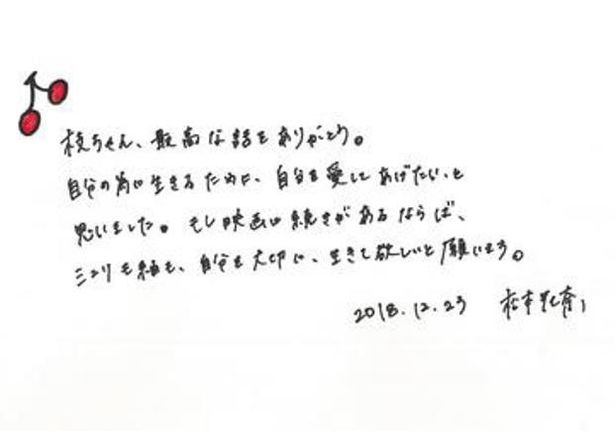 枝ちゃん、最高な話をありがとう。
自分の為に生きるために、自分を愛してあげたいと
思いました。もし映画に続きがあるならば、
ミユリも紬も、自分を大切に、生きて欲しいと願います。
2018.12.23 松本花奈